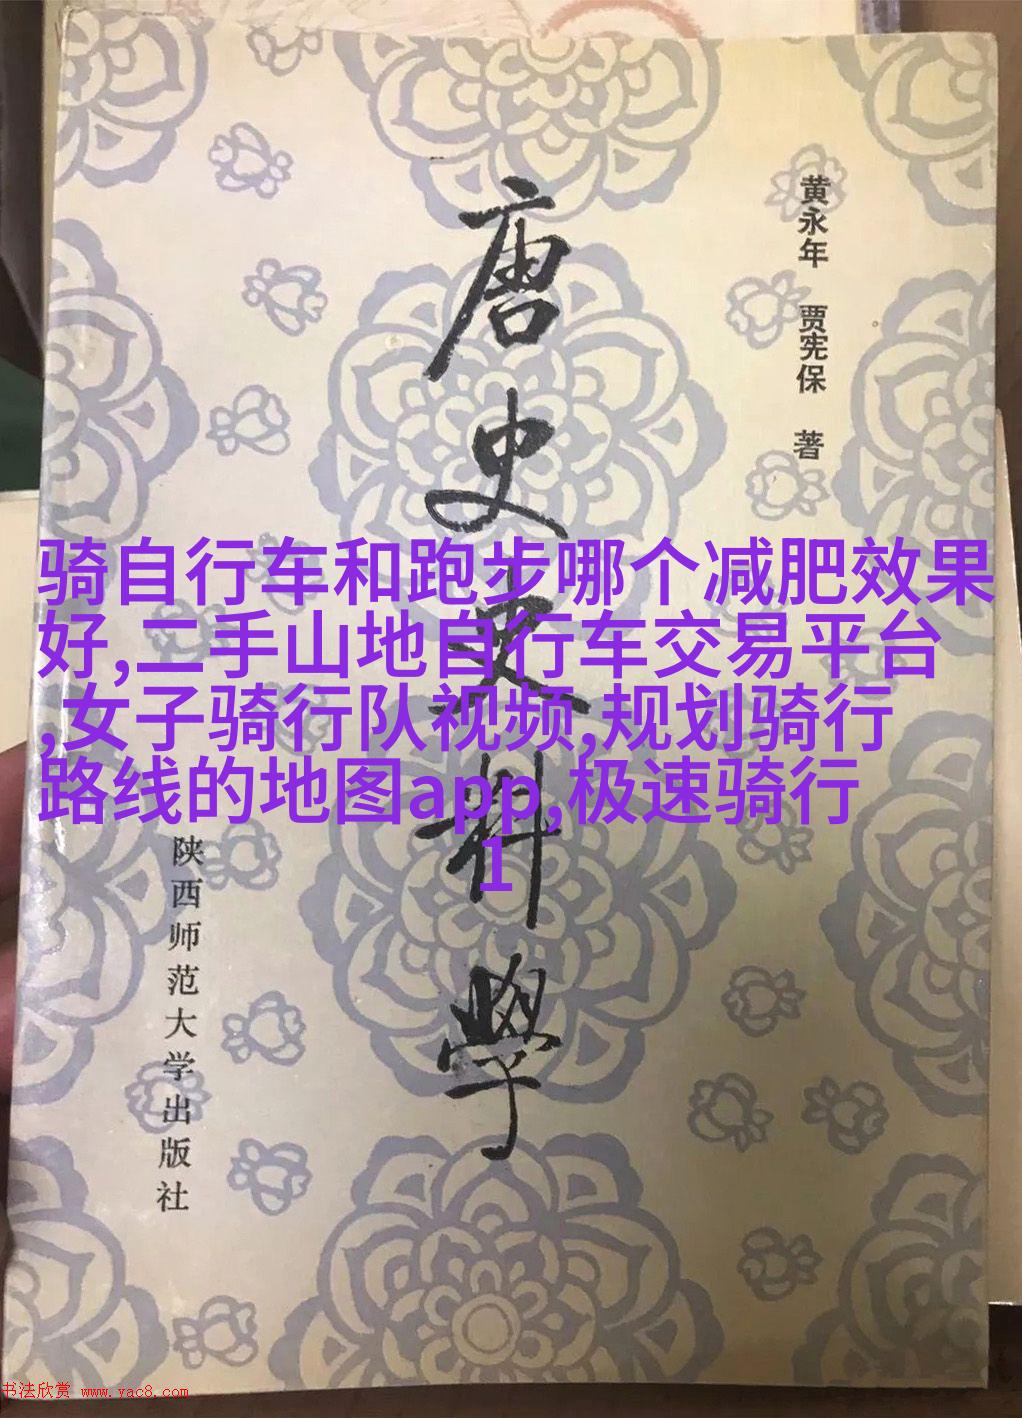 唐史史料学
黄永年 贾宪保 著
骑自行车和跑步哪个减肥效果
好,二手山地自行车交易平台
,女子骑行队视频,规划骑行
路线的地图app,极速骑行
1
陕西师范大学出版社
书法欣赏 www.yac8.com